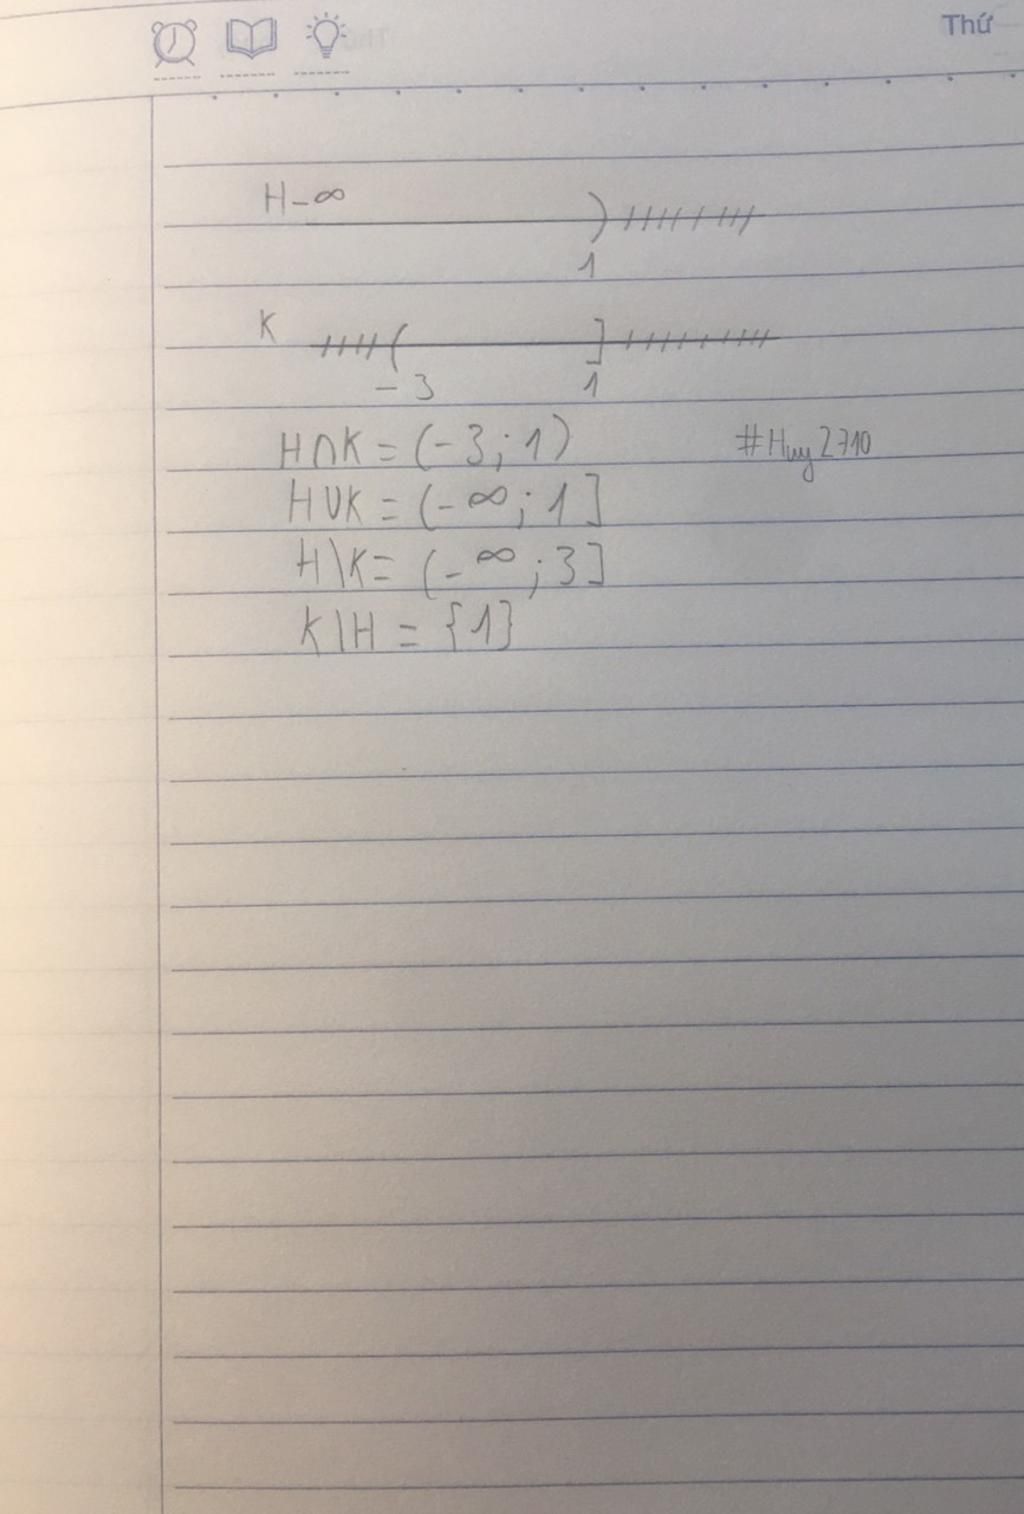 Thứ
H -∞ )
1
K ( ]
-3 1
H∩K = (-3; 1) #Huy2710
H∪K = (-∞; 1]
H\K = (-∞; 3]
K\H = {1}